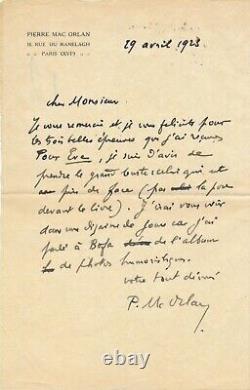 PIERRE MAC ORLAN
RUE DU RANELAGH
PARIS (XVIe)
29 avril 1923
Cher Monsieur
Je vous remercie et je vous félicite pour
les très belles épreuves que j'ai reçues
Pour Eve, je suis d'avis de
prendre le grand buste celui qui est
pris de face (pas la pose
devant le livre). J'irai vous voir
dans une dizaine de jours car j'ai
parlé à Bofa de l'album
de photos humoristiques.
votre tout dévoué
P. Mc Orlan